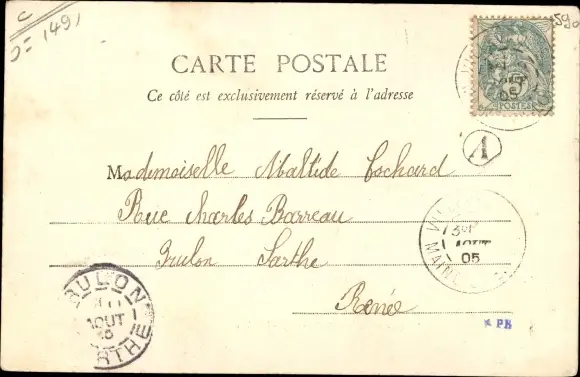 C
J= 1491
590
CARTE POSTALE
Ce côté est exclusivement réservé à l'adresse
5
POSTES
AOUT
05
A
Mademoiselle Maltide Eschard
Rue Charles Barreau
Brulon Sarthe
Renée
AOUT
05
MAINE
BRULON
AOUT
05
SARTHE
* PB